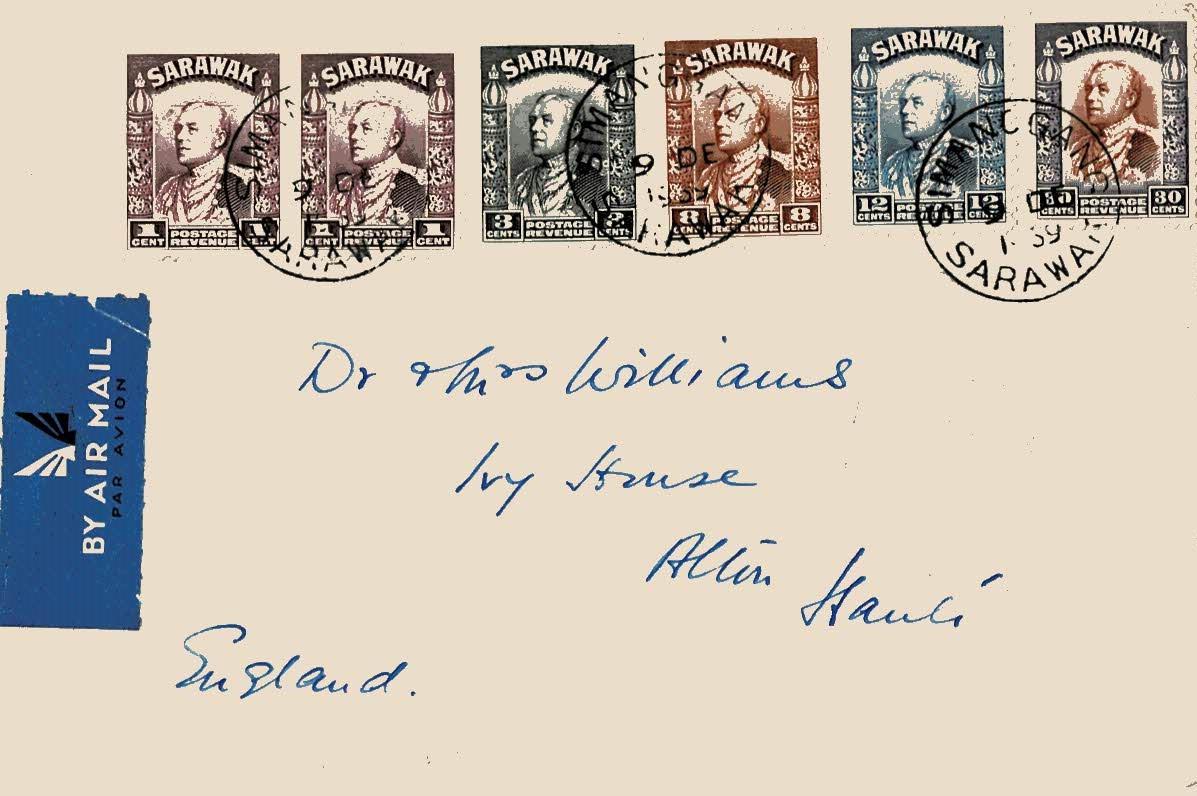 SARAWAK SARAWAK SARAWAK SARAWAK SARAWAK SARAWAK
1 CENT POSTAGE REVENUE 1
1 POSTAGE REVENUE 1 CENT
3 CENTS POSTAGE REVENUE 3 CENTS
8 CENTS POSTAGE REVENUE 8 CENTS
12 CENTS POSTAGE REVENUE 12 CENTS
30 30 CENTS
9 DE
SARAWAK
SIMANGGANG
9 DE
1939
SIMANGGANG
9 DE
SARAWAK
BY AIR MAIL
PAR AVION
Dr & Mrs Williams
Ivy House
Alton
Hants
England.